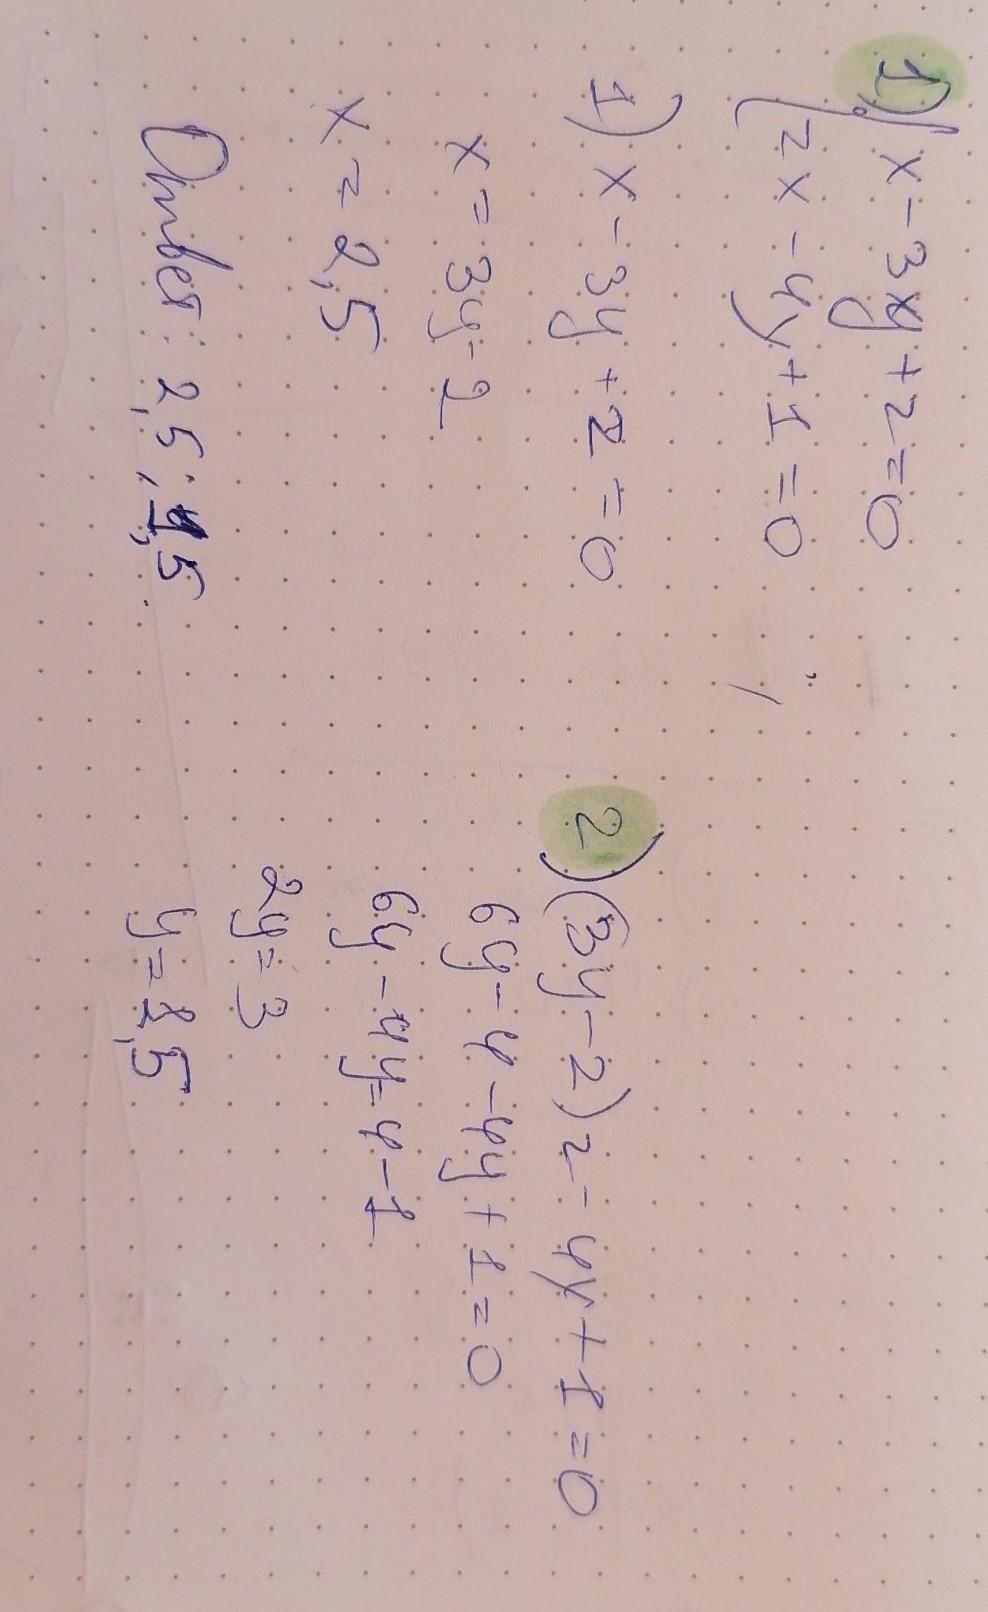 1) x - 3y + 2 = 0
2x - 4y + 1 = 0
1) x - 3y + 2 = 0
x = 3y - 2
x = 2,5
Ответ: 2,5; 1,5.
2) (3y - 2) 2 - 4y + 1 = 0
6y - 4 - 4y + 1 = 0
6y - 4y = 4 - 1
2y = 3
y = 1,5